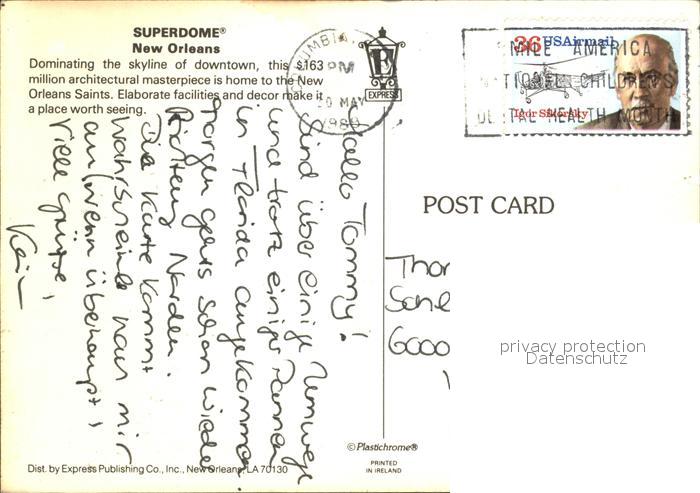 SUPERDOME®
New Orleans
Dominating the skyline of downtown, this $163
million architectural masterpiece is home to the New
Orleans Saints. Elaborate facilities and decor make it
a place worth seeing.
Hallo Tommy!
Sind über einige Umwege
und trotz einiger Pannen
in Florida angekommen
morgen gehts schon wieder
Richtung Norden.
Die Karte kommt
wahrscheinl. nach mir
an (wenn überhaupt)
Viele Grüsse,
Dist. by Express Publishing Co., Inc., New Orleans, LA 70130
E
EXPRESS
COLUMBIA,
PM
MAY
36 USAirmail
Igor Sikorsky
SMILE AMERICA
NATIONAL CHILDREN'S
DENTAL HEALTH MONTH
POST CARD
Thor
6000
privacy protection
Datenschutz
© Plastichrome®
PRINTED
IN IRELAND